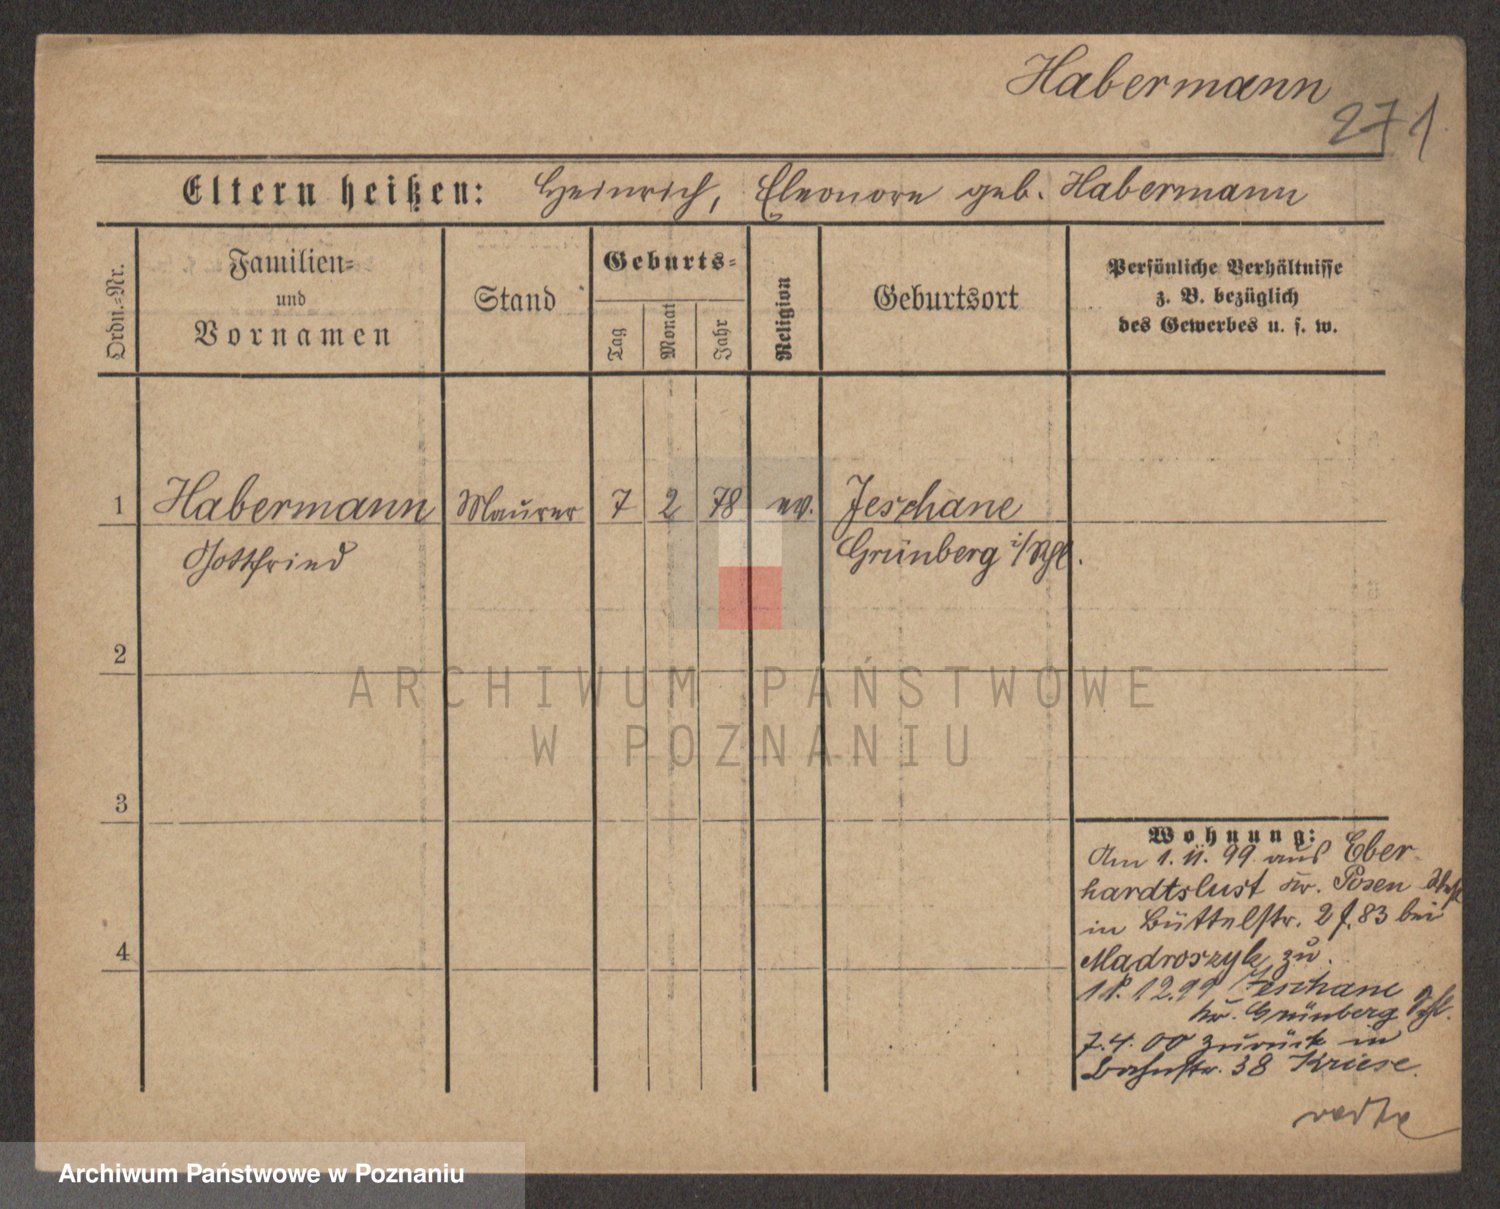 Habermann
271
Eltern heißen: Heinrich, Eleonore geb. Habermann
Ordn.-Nr.
Familien-
und
Vornamen
Stand
Geburts-
Tag
Monat
Jahr
Religion
Geburtsort
Persönliche Verhältnisse
z. B. bezüglich
des Gewerbes u. s. w.
1 Habermann Maurer 7 2 78 ev. Jeschane
Gottfried Grünberg i/Schl.
2
3
4
ARCHIWUM PAŃSTWOWE
W POZNANIU
Wohnung:
Am 1. 11. 99 aus Eber-
hardtslust Kr. Posen
in Büttelstr. 2 f. 83 bei
Madroszyk zu
12.99 Jeschane
Kr. Grünberg Schl.
7.4.00 zurück in
Bahnstr. 38 Kriese.
Archiwum Państwowe w Poznaniu